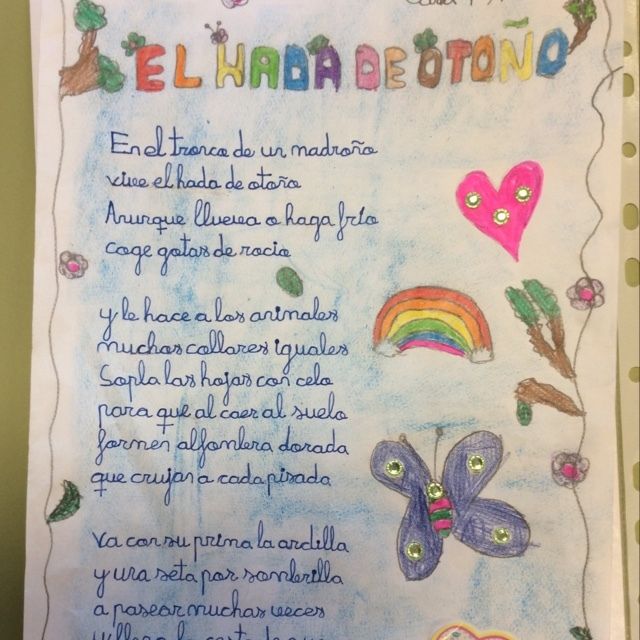 EL HADA DE OTOÑO
En el tronco de un madroño
vive el hada de otoño
Aunque llueva o haga frío
coge gotas de rocio
y le hace a los animales
muchos collares iguales
Sopla las hojas con celo
para que al caer al suelo
formen alfombra dorada
que crujan a cada pisada
Va con su prima la ardilla
y una seta por sombrilla
a pasear muchas veces